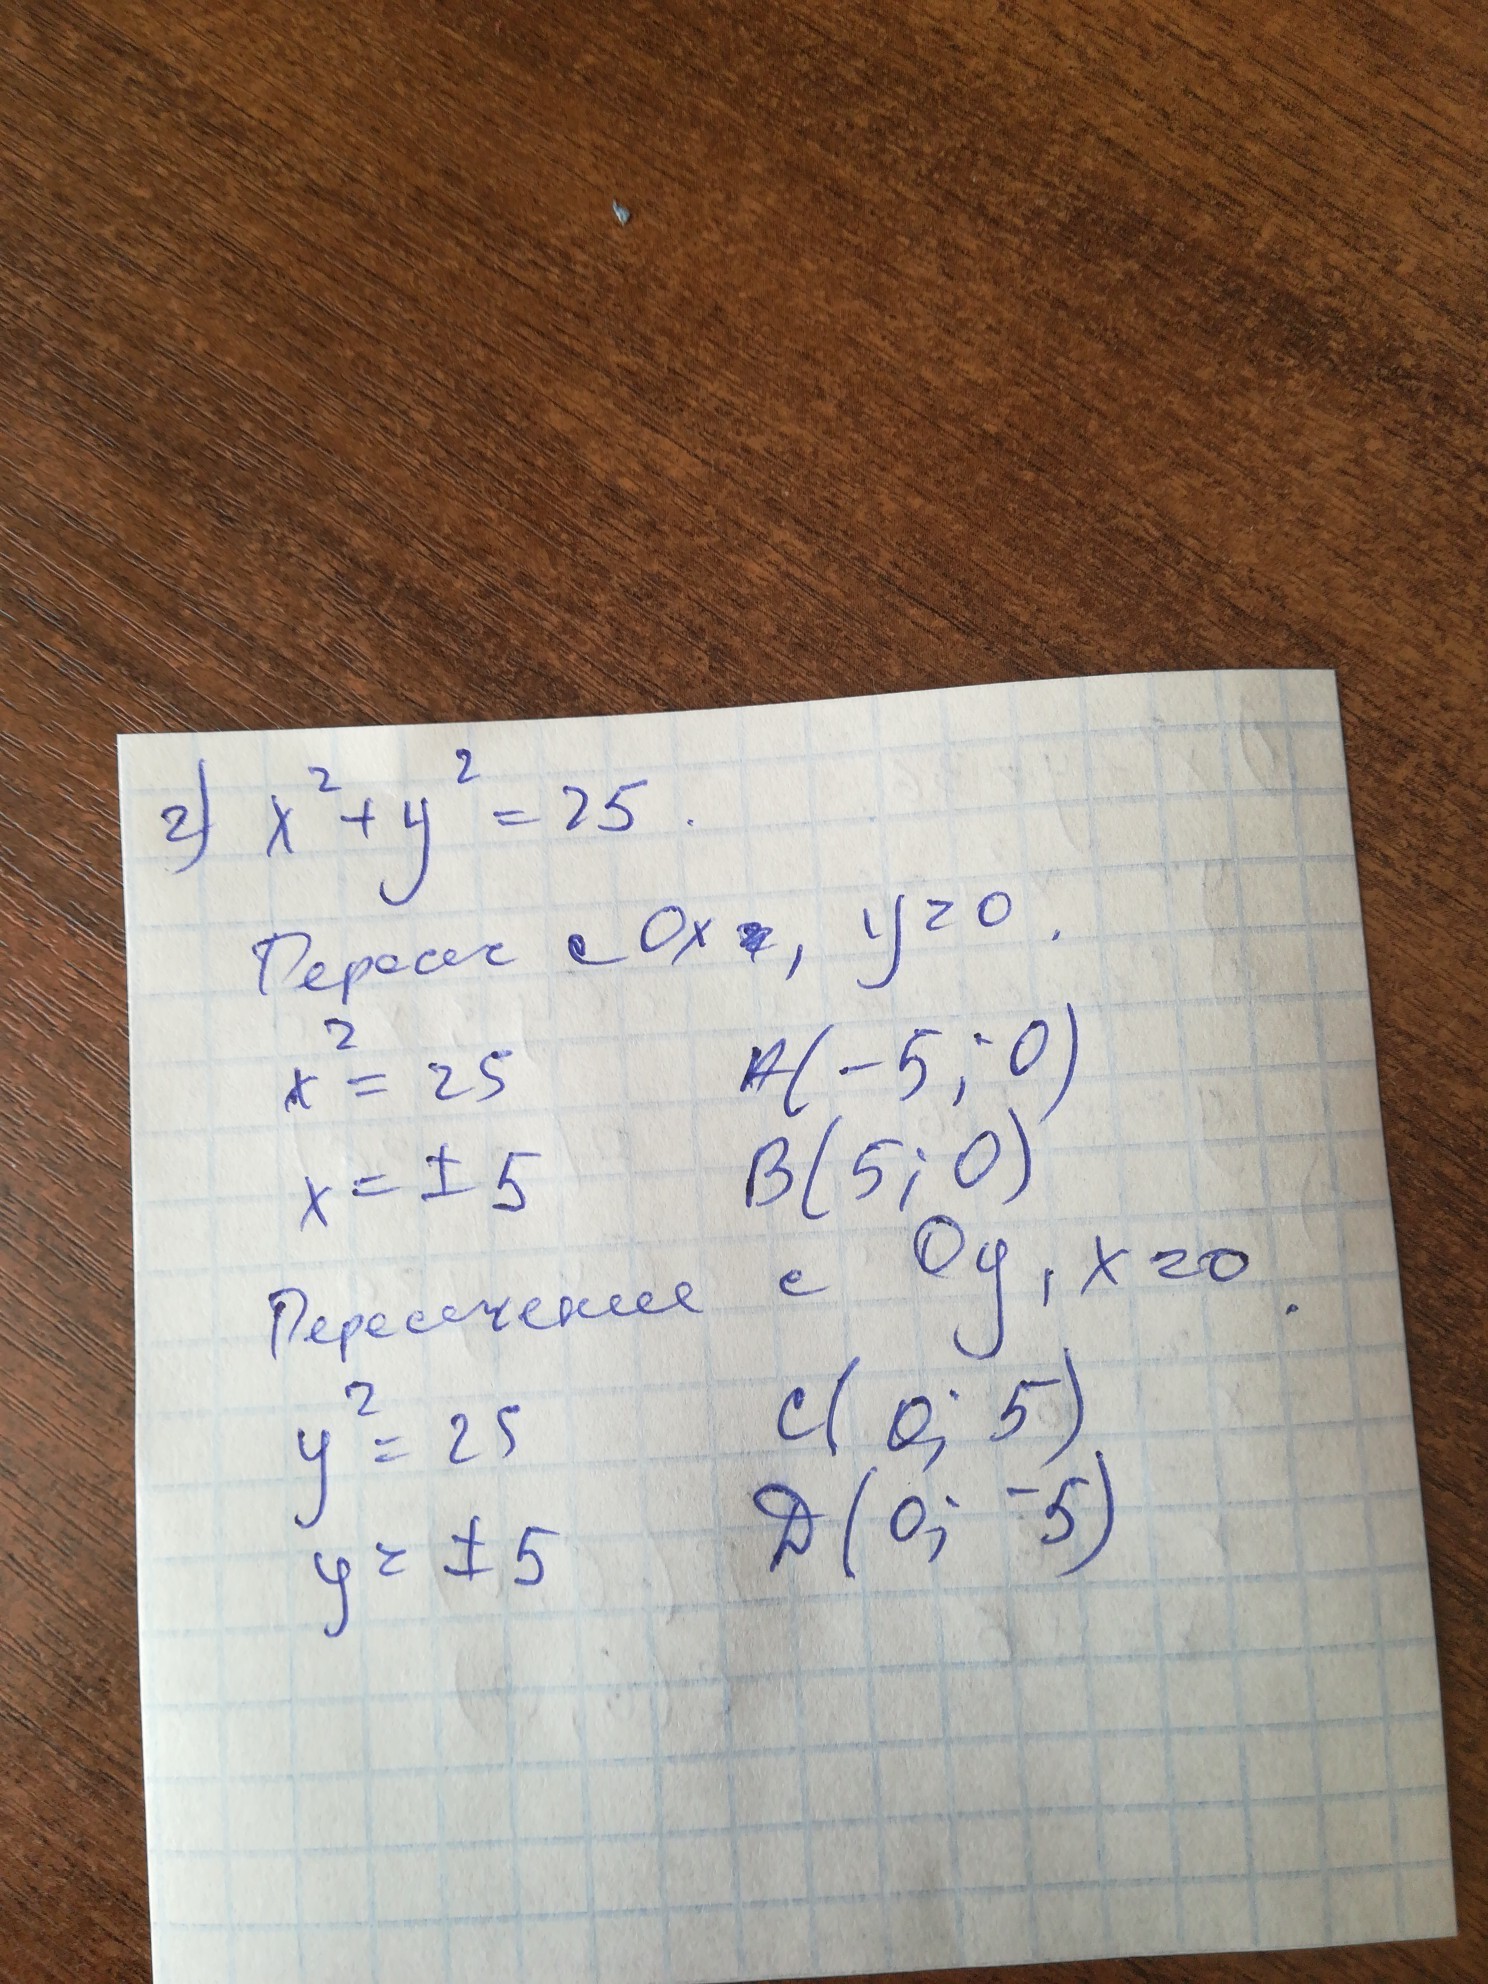 2) x² + y² = 25.
Пересеч с Ox, y=0.
x² = 25 A(-5; 0)
x = ±5 B(5; 0)
Пересечение с Oy, x=0.
y² = 25 C(0; 5)
y = ±5 D(0; -5)